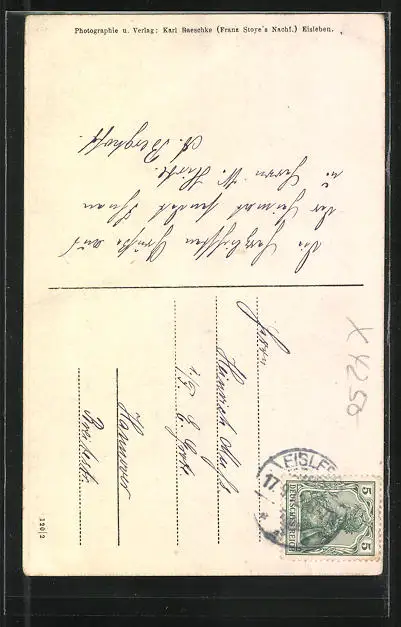 Photographie u. Verlag: Karl Baeschke (Franz Stoye's Nachf.) Eisleben.
Die herzlichsten Grüße aus
der Heimat sendet Ihnen
u. Herrn W. Hirte.
A. Berghoff.
Herrn
Heinrich
Hannover
Breitestr.
X 4250
EISLEB
17.
5 5
DEUTSCHES REICH
320/2